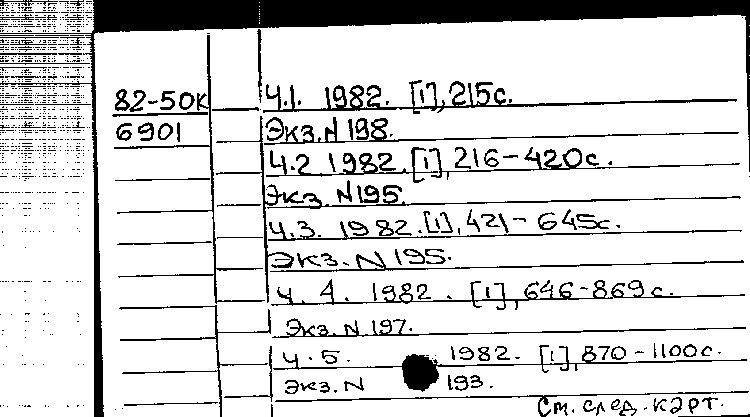 82-50К
6901
Ч.1. 1982. [1], 215с.
Экз. N 198.
Ч.2 1982. [1], 216-420с.
Экз. N195.
Ч.3. 1982. [1], 421-645с.
Экз. N 195.
Ч. 4. 1982. [1], 646-869с.
Экз. N 197.
Ч. 5. 1982. [1], 870-1100с.
Экз. N 193.
См. след. карт.